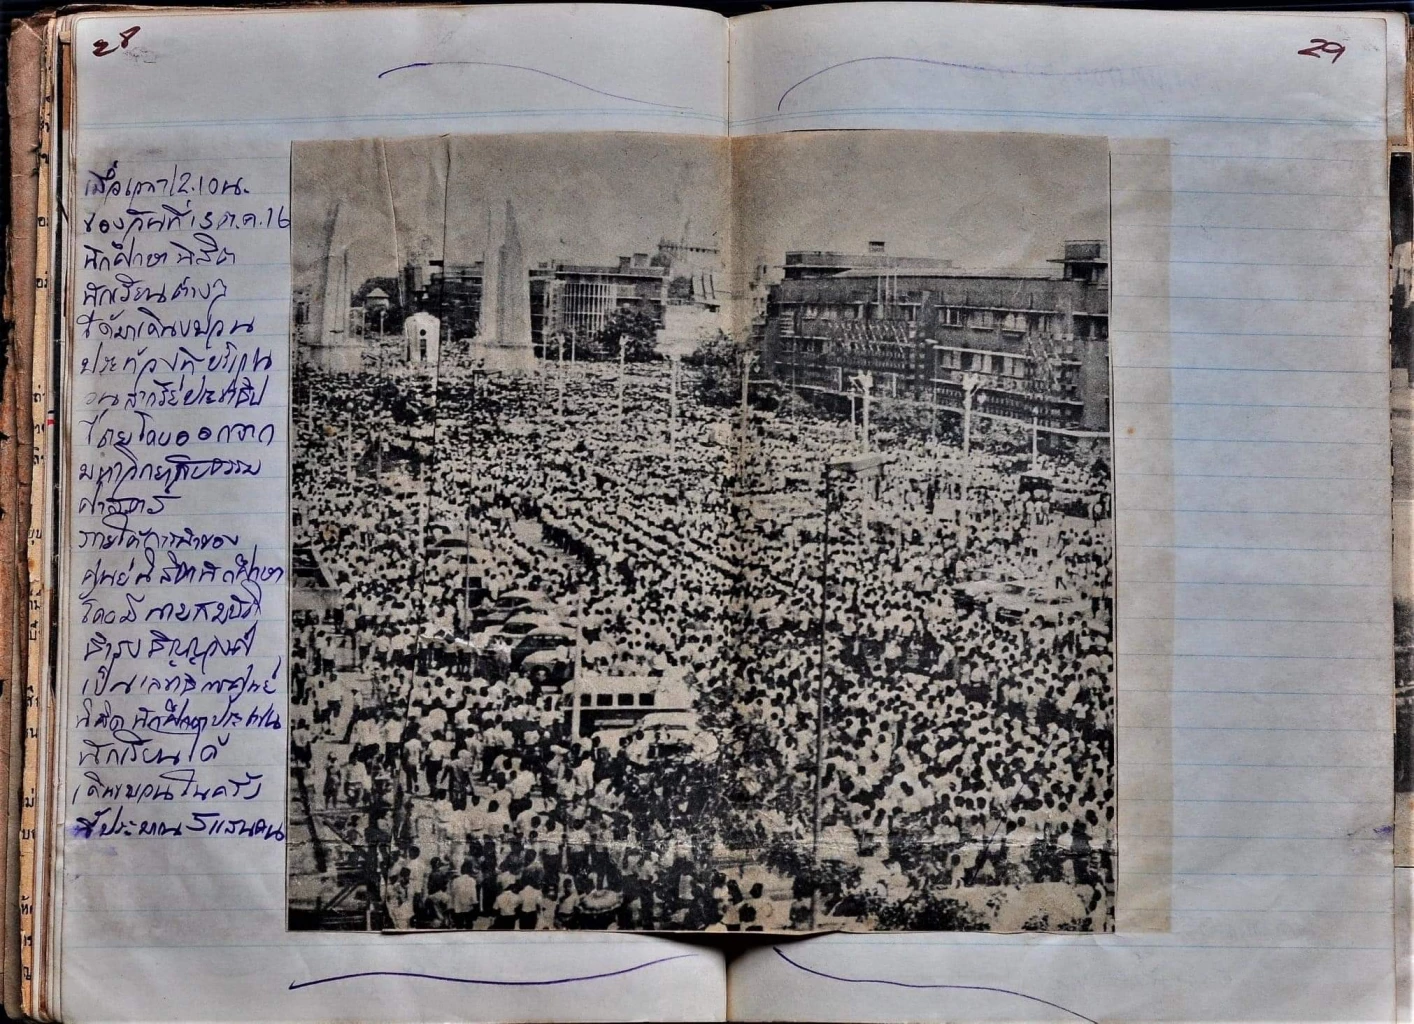 28
29
เมื่อเวลา 12.10 น.
ของวันที่ 13 ต.ค.16
นักศึกษา นิสิต
นักเรียนต่างๆ
ได้มาเดินขบวน
ประท้วงที่บริเวณ
อนุสาวรีย์ประชาธิป
ไตยโดยออกจาก
มหาวิทยาลัยธรรม
ศาสตร์
ภายใต้การนำของ
ศูนย์นิสิตนักศึกษา
โดยมีนายสมบัติ
ธำรงธัญญวงศ์
เป็นเลขาธิการศูนย์
นิสิตนักศึกษาประชาชน
นักเรียนได้
เดินขบวนในครั้ง
นี้ประมาณ 5 แสนคน